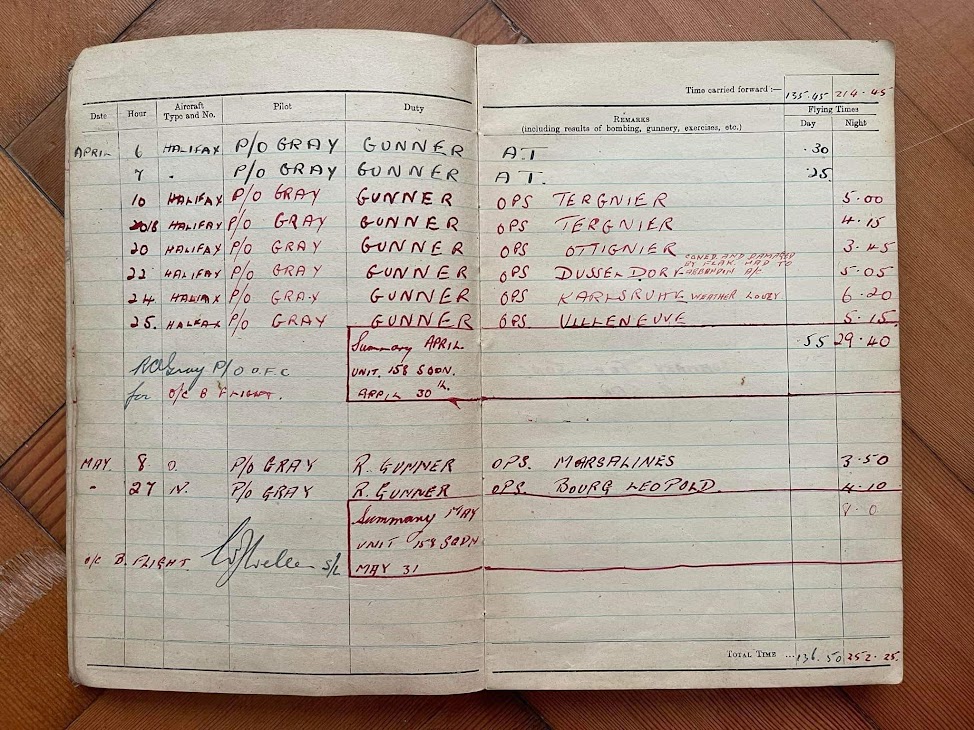 Time carried forward :— 135.45 214.45
Date Hour Aircraft Type and No. Pilot Duty REMARKS (including results of bombing, gunnery, exercises, etc.) Flying Times Day Night
APRIL 6 HALIFAX P/O GRAY GUNNER A.T .30
7 " P/O GRAY GUNNER A.T. .25
10 HALIFAX P/O GRAY GUNNER OPS TERGNIER 5.00
18 HALIFAX P/O GRAY GUNNER OPS TERGNIER 4.15
20 HALIFAX P/O GRAY GUNNER OPS OTTIGNIER 3.45
22 HALIFAX P/O GRAY GUNNER OPS DUSSELDORF CONED AND DAMAGED BY FLAK. HAD TO ABBANDON A/C 5.05
24. HALIFAX P/O GRAY GUNNER OPS KARLSRUHE WEATHER LOUZY 6.20
25. HALIFAX P/O GRAY GUNNER OPS VILLENEUVE 5.15
Summary APRIL. .55 29.40
Gray P/O
UNIT. 158 SQDN.
for O/C B FLIGHT.
APRIL 30th.
MAY. 8 O. P/O GRAY R. GUNNER OPS. MARSALINES 3.50
- 27 N. P/O GRAY R. GUNNER OPS. BOURG LEOPOLD. 4.10
Summary MAY 8.0
UNIT 158 SQDN
O/C B. FLIGHT. S/L
MAY 31
TOTAL TIME ... 136.50 252.25.